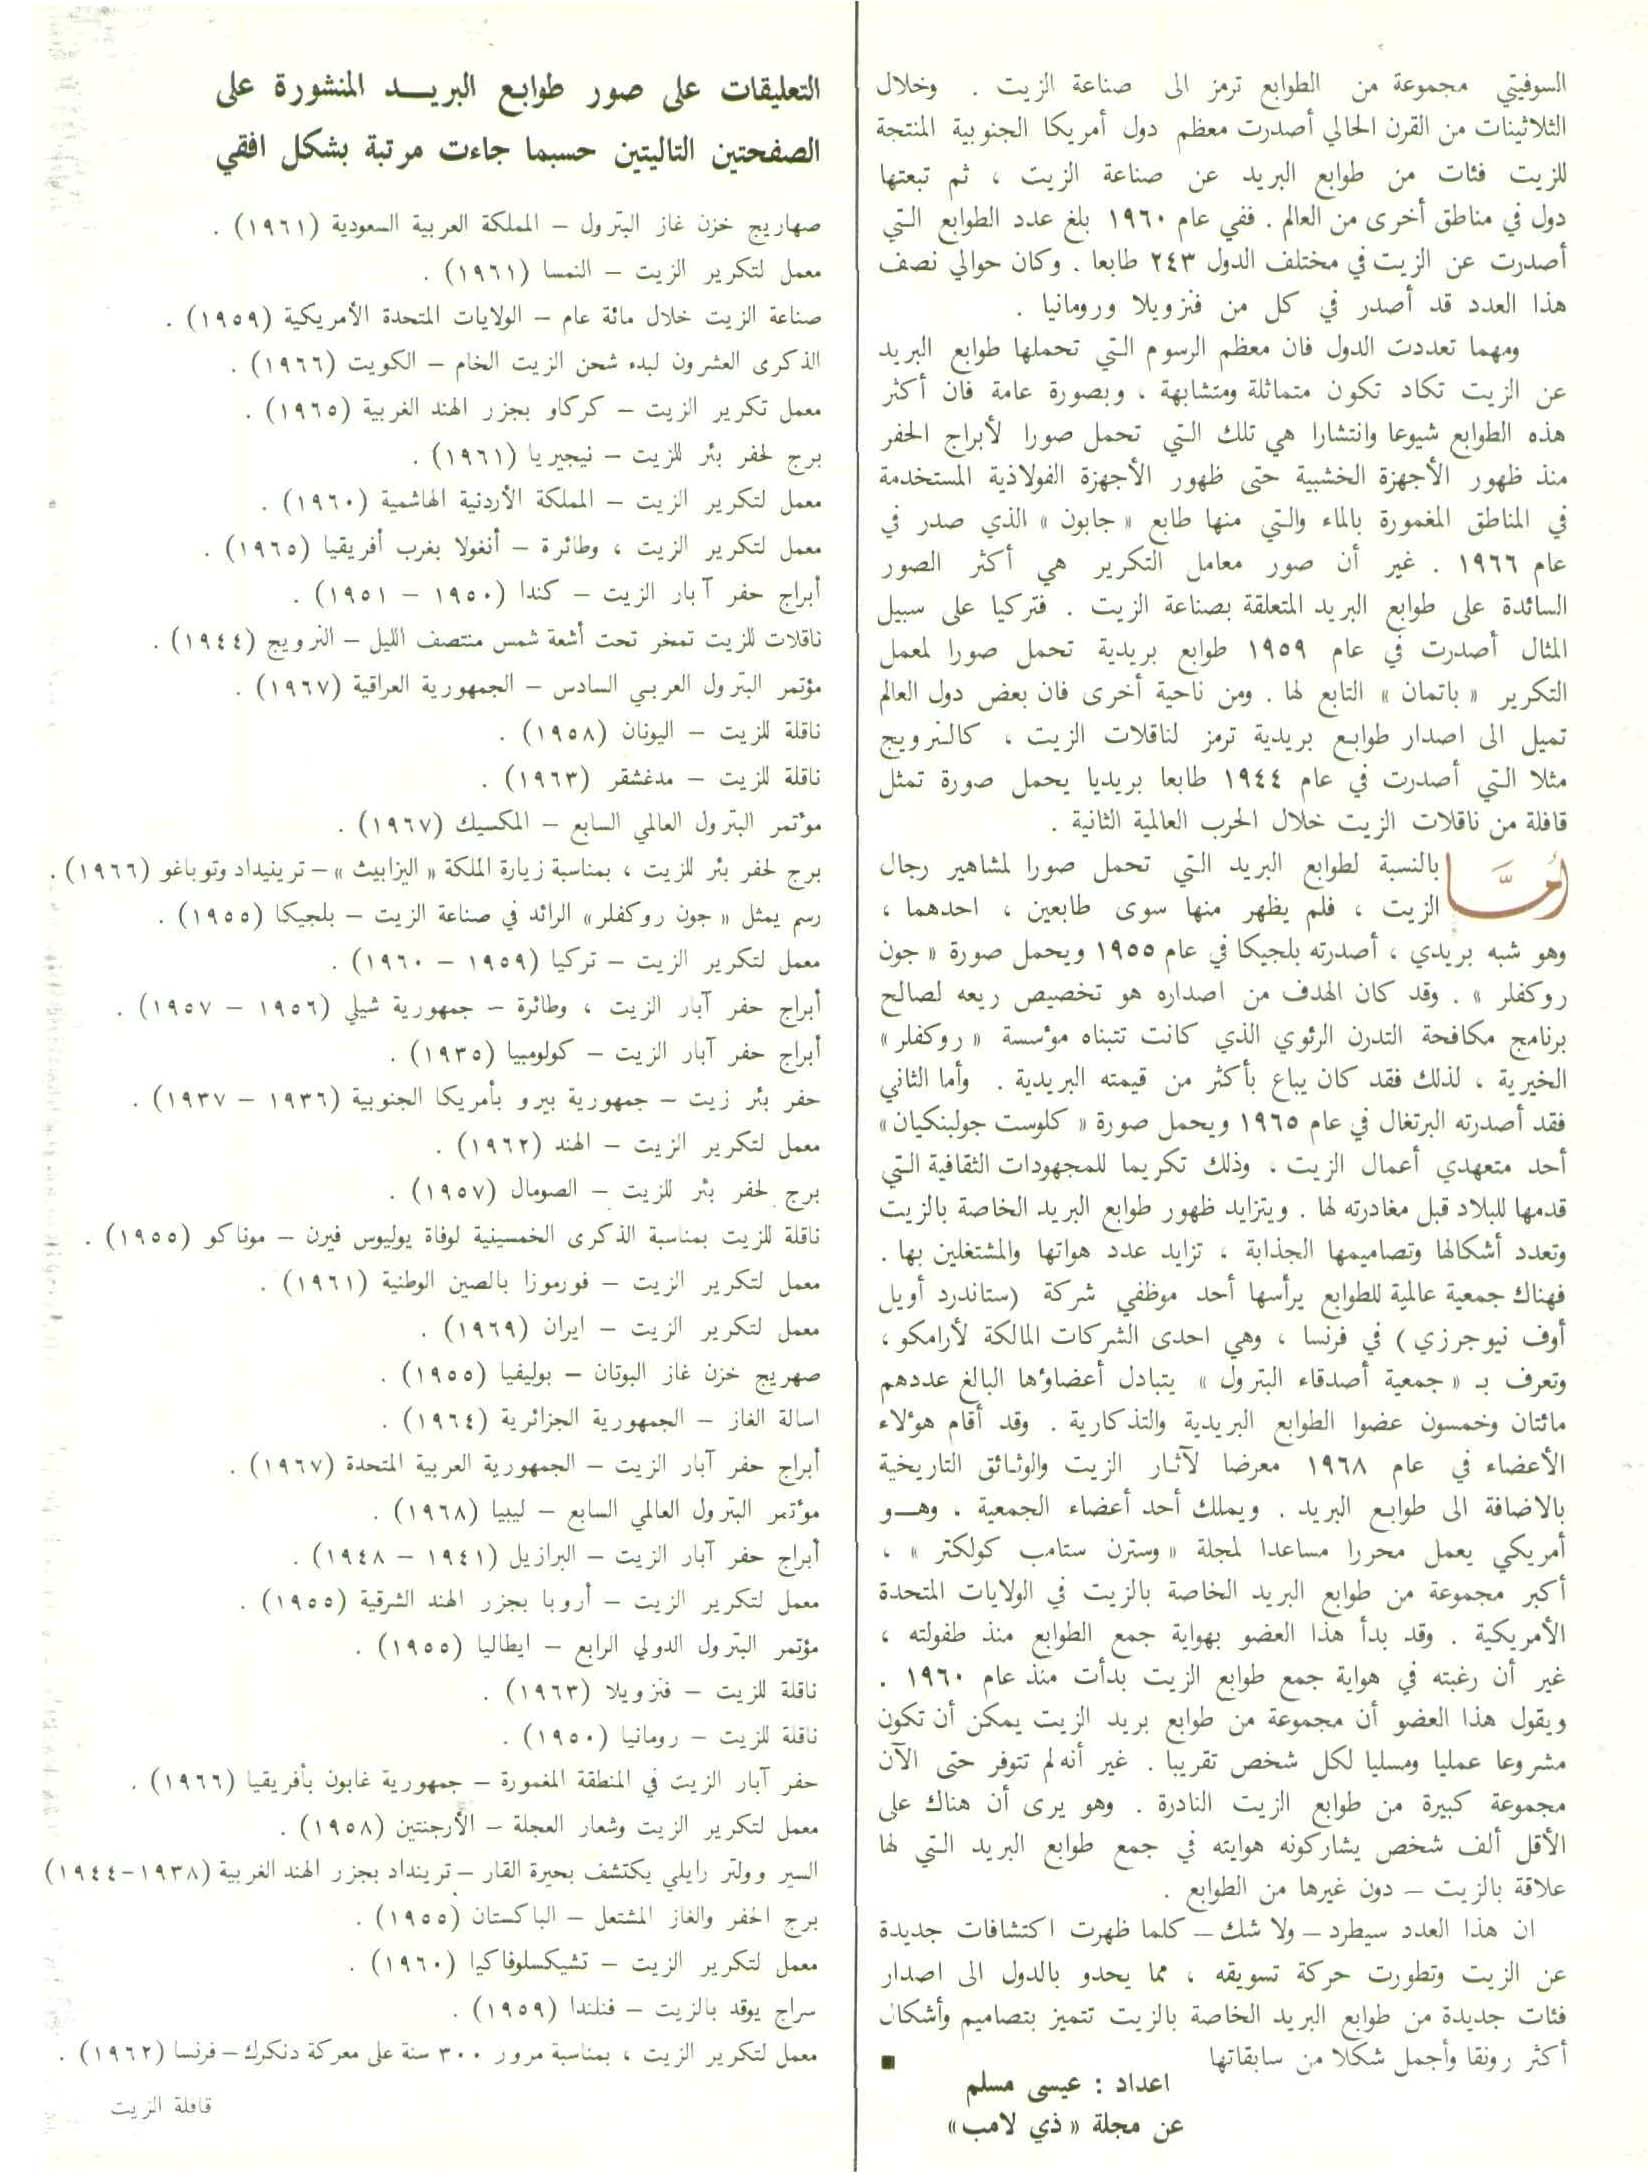 السوفيتي مجموعة من الطوابع ترمز الى صناعة الزيت . وخلال
الثلاثينات من القرن الحالي أصدرت معظم دول أمريكا الجنوبية المنتجة
للزيت فئات من طوابع البريد عن صناعة الزيت ، ثم تبعتها
دول في مناطق أخرى من العالم . ففي عام ١٩٦٠ بلغ عدد الطوابع التي
أصدرت عن الزيت في مختلف الدول ٢٤٣ طابعا . وكان حوالي نصف
هذا العدد قد أصدر في كل من فنزويلا ورومانيا .
ومهما تعددت الدول فان معظم الرسوم التي تحملها طوابع البريد
عن الزيت تكاد تكون متماثلة ومتشابهة ، وبصورة عامة فان أكثر
هذه الطوابع شيوعا وانتشارا هي تلك التي تحمل صورا لأبراج الحفر
منذ ظهور الأجهزة الخشبية حتى ظهور الأجهزة الفولاذية المستخدمة
في المناطق المغمورة بالماء والتي منها طابع « جابون » الذي صدر في
عام ١٩٦٦ . غير أن صور معامل التكرير هي أكثر الصور
السائدة على طوابع البريد المتعلقة بصناعة الزيت . فتركيا على سبيل
المثال أصدرت في عام ١٩٥٩ طوابع بريدية تحمل صورا لمعمل
التكرير « باتمان » التابع لها . ومن ناحية أخرى فان بعض دول العالم
تميل الى اصدار طوابع بريدية ترمز لناقلات الزيت ، كالنرويج
مثلا التي أصدرت في عام ١٩٤٤ طابعا بريديا يحمل صورة تمثل
قافلة من ناقلات الزيت خلال الحرب العالمية الثانية .
أمَّا بالنسبة لطوابع البريد التي تحمل صورا لمشاهير رجال
الزيت ، فلم يظهر منها سوى طابعين ، احدهما ،
وهو شبه بريدي ، أصدرته بلجيكا في عام ١٩٥٥ ويحمل صورة « جون
روكفلر » . وقد كان الهدف من اصداره هو تخصيص ريعه لصالح
برنامج مكافحة التدرن الرئوي الذي كانت تتبناه مؤسسة « روكفلر »
الخيرية ، لذلك فقد كان يباع بأكثر من قيمته البريدية . وأما الثاني
فقد أصدرته البرتغال في عام ١٩٦٥ ويحمل صورة « كلوست جولبنكيان »
أحد متعهدي أعمال الزيت ، وذلك تكريما للمجهودات الثقافية التي
قدمها للبلاد قبل مغادرته لها . ويتزايد ظهور طوابع البريد الخاصة بالزيت
وتعدد أشكالها وتصاميمها الجذابة ، تزايد عدد هواتها والمشتغلين بها .
فهناك جمعية عالمية للطوابع يرأسها أحد موظفي شركة (ستاندرد أويل
أوف نيوجرزي) في فرنسا ، وهي احدى الشركات المالكة لأرامكو ،
وتعرف بـ « جمعية أصدقاء البترول » يتبادل أعضاؤها البالغ عددهم
مائتان وخمسون عضوا الطوابع البريدية والتذكارية . وقد أقام هؤلاء
الأعضاء في عام ١٩٦٨ معرضا لآثار الزيت والوثائق التاريخية
بالاضافة الى طوابع البريد . ويملك أحد أعضاء الجمعية ، وهـــو
أمريكي يعمل محررا مساعدا لمجلة « وسترن ستامب كولكتر » ،
أكبر مجموعة من طوابع البريد الخاصة بالزيت في الولايات المتحدة
الأمريكية . وقد بدأ هذا العضو بهواية جمع الطوابع منذ طفولته ،
غير أن رغبته في هواية جمع طوابع الزيت بدأت منذ عام ١٩٦٠ .
ويقول هذا العضو أن مجموعة من طوابع بريد الزيت يمكن أن تكون
مشروعا عمليا ومسليا لكل شخص تقريبا . غير أنه لم تتوفر حتى الآن
مجموعة كبيرة من طوابع الزيت النادرة . وهو يرى أن هناك على
الأقل ألف شخص يشاركونه هوايته في جمع طوابع البريد التي لها
علاقة بالزيت – دون غيرها من الطوابع .
ان هذا العدد سيطرد – ولا شك – كلما ظهرت اكتشافات جديدة
عن الزيت وتطورت حركة تسويقه ، مما يحدو بالدول الى اصدار
فئات جديدة من طوابع البريد الخاصة بالزيت تتميز بتصاميم وأشكال
أكثر رونقا وأجمل شكلا من سابقاتها ■
اعداد : عيسى مسلم
عن مجلة « ذي لامب »
التعليقات على صور طوابع البريـــد المنشورة على
الصفحتين التاليتين حسبما جاءت مرتبة بشكل افقي
صهاريج خزن غاز البترول – المملكة العربية السعودية (١٩٦١) .
معمل لتكرير الزيت – النمسا (١٩٦١) .
صناعة الزيت خلال مائة عام – الولايات المتحدة الأمريكية (١٩٥٩) .
الذكرى العشرون لبدء شحن الزيت الخام – الكويت (١٩٦٦) .
معمل تكرير الزيت – كركاو بجزر الهند الغربية (١٩٦٥) .
برج لحفر بئر للزيت – نيجيريا (١٩٦١) .
معمل لتكرير الزيت – المملكة الأردنية الهاشمية (١٩٦٠) .
معمل لتكرير الزيت ، وطائرة – أنغولا بغرب أفريقيا (١٩٦٥) .
أبراج حفر آبار الزيت – كندا (١٩٥٠ – ١٩٥١) .
ناقلات للزيت تمخر تحت أشعة شمس منتصف الليل – النرويج (١٩٤٤) .
مؤتمر البترول العربي السادس – الجمهورية العراقية (١٩٦٧) .
ناقلة للزيت – اليونان (١٩٥٨) .
ناقلة للزيت – مدغشقر (١٩٦٣) .
مؤتمر البترول العالمي السابع – المكسيك (١٩٦٧) .
برج لحفر بئر للزيت ، بمناسبة زيارة الملكة « اليزابيث » – ترينيداد وتوباغو (١٩٦٦) .
رسم يمثل « جون روكفلر » الرائد في صناعة الزيت – بلجيكا (١٩٥٥) .
معمل لتكرير الزيت – تركيا (١٩٥٩ – ١٩٦٠) .
أبراج حفر آبار الزيت ، وطائرة – جمهورية شيلي (١٩٥٦ – ١٩٥٧) .
أبراج حفر آبار الزيت – كولومبيا (١٩٣٥) .
حفر بئر زيت – جمهورية بيرو بأمريكا الجنوبية (١٩٣٦ – ١٩٣٧) .
معمل لتكرير الزيت – الهند (١٩٦٢) .
برج لحفر بئر للزيت – الصومال (١٩٥٧) .
ناقلة للزيت بمناسبة الذكرى الخمسينية لوفاة يوليوس فيرن – موناكو (١٩٥٥) .
معمل لتكرير الزيت – فورموزا بالصين الوطنية (١٩٦١) .
معمل لتكرير الزيت – ايران (١٩٦٩) .
صهريج خزن غاز البوتان – بوليفيا (١٩٥٥) .
اسالة الغاز – الجمهورية الجزائرية (١٩٦٤) .
أبراج حفر آبار الزيت – الجمهورية العربية المتحدة (١٩٦٧) .
مؤتمر البترول العالمي السابع – ليبيا (١٩٦٨) .
أبراج حفر آبار الزيت – البرازيل (١٩٤١ – ١٩٤٨) .
معمل لتكرير الزيت – أروبا بجزر الهند الشرقية (١٩٥٥) .
مؤتمر البترول الدولي الرابع – ايطاليا (١٩٥٥) .
ناقلة للزيت – فنزويلا (١٩٦٣) .
ناقلة للزيت – رومانيا (١٩٥٠) .
حفر آبار الزيت في المنطقة المغمورة – جمهورية غابون بأفريقيا (١٩٦٦) .
معمل لتكرير الزيت وشعار العجلة – الأرجنتين (١٩٥٨) .
السير وولتر رايلي يكتشف بحيرة القار – ترينداد بجزر الهند الغربية (١٩٣٨-١٩٤٤)
برج الحفر والغاز المشتعل – الباكستان (١٩٥٥) .
معمل لتكرير الزيت – تشيكسلوفاكيا (١٩٦٠) .
سراج يوقد بالزيت – فنلندا (١٩٥٩) .
معمل لتكرير الزيت ، بمناسبة مرور ٣٠٠ سنة على معركة دنكرك – فرنسا (١٩٦٢) .
قافلة الزيت